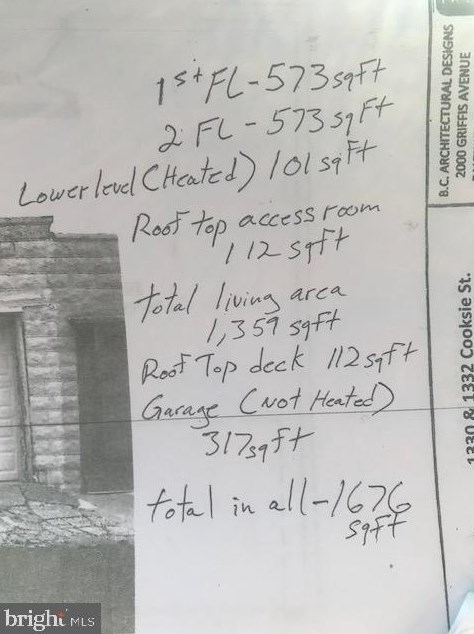 1st FL - 573 sqft
2 FL - 573 sqft
Lower level (Heated) 101 sqft
Roof top access room
112 sqft
total living area
1,359 sqft
Roof Top deck 112 sqft
Garage (Not Heated)
317 sqft
total in all - 1676
sqft
B.C. ARCHITECTURAL DESIGNS
2000 GRIFFIS AVENUE
1330 & 1332 Cooksie St.
bright MLS